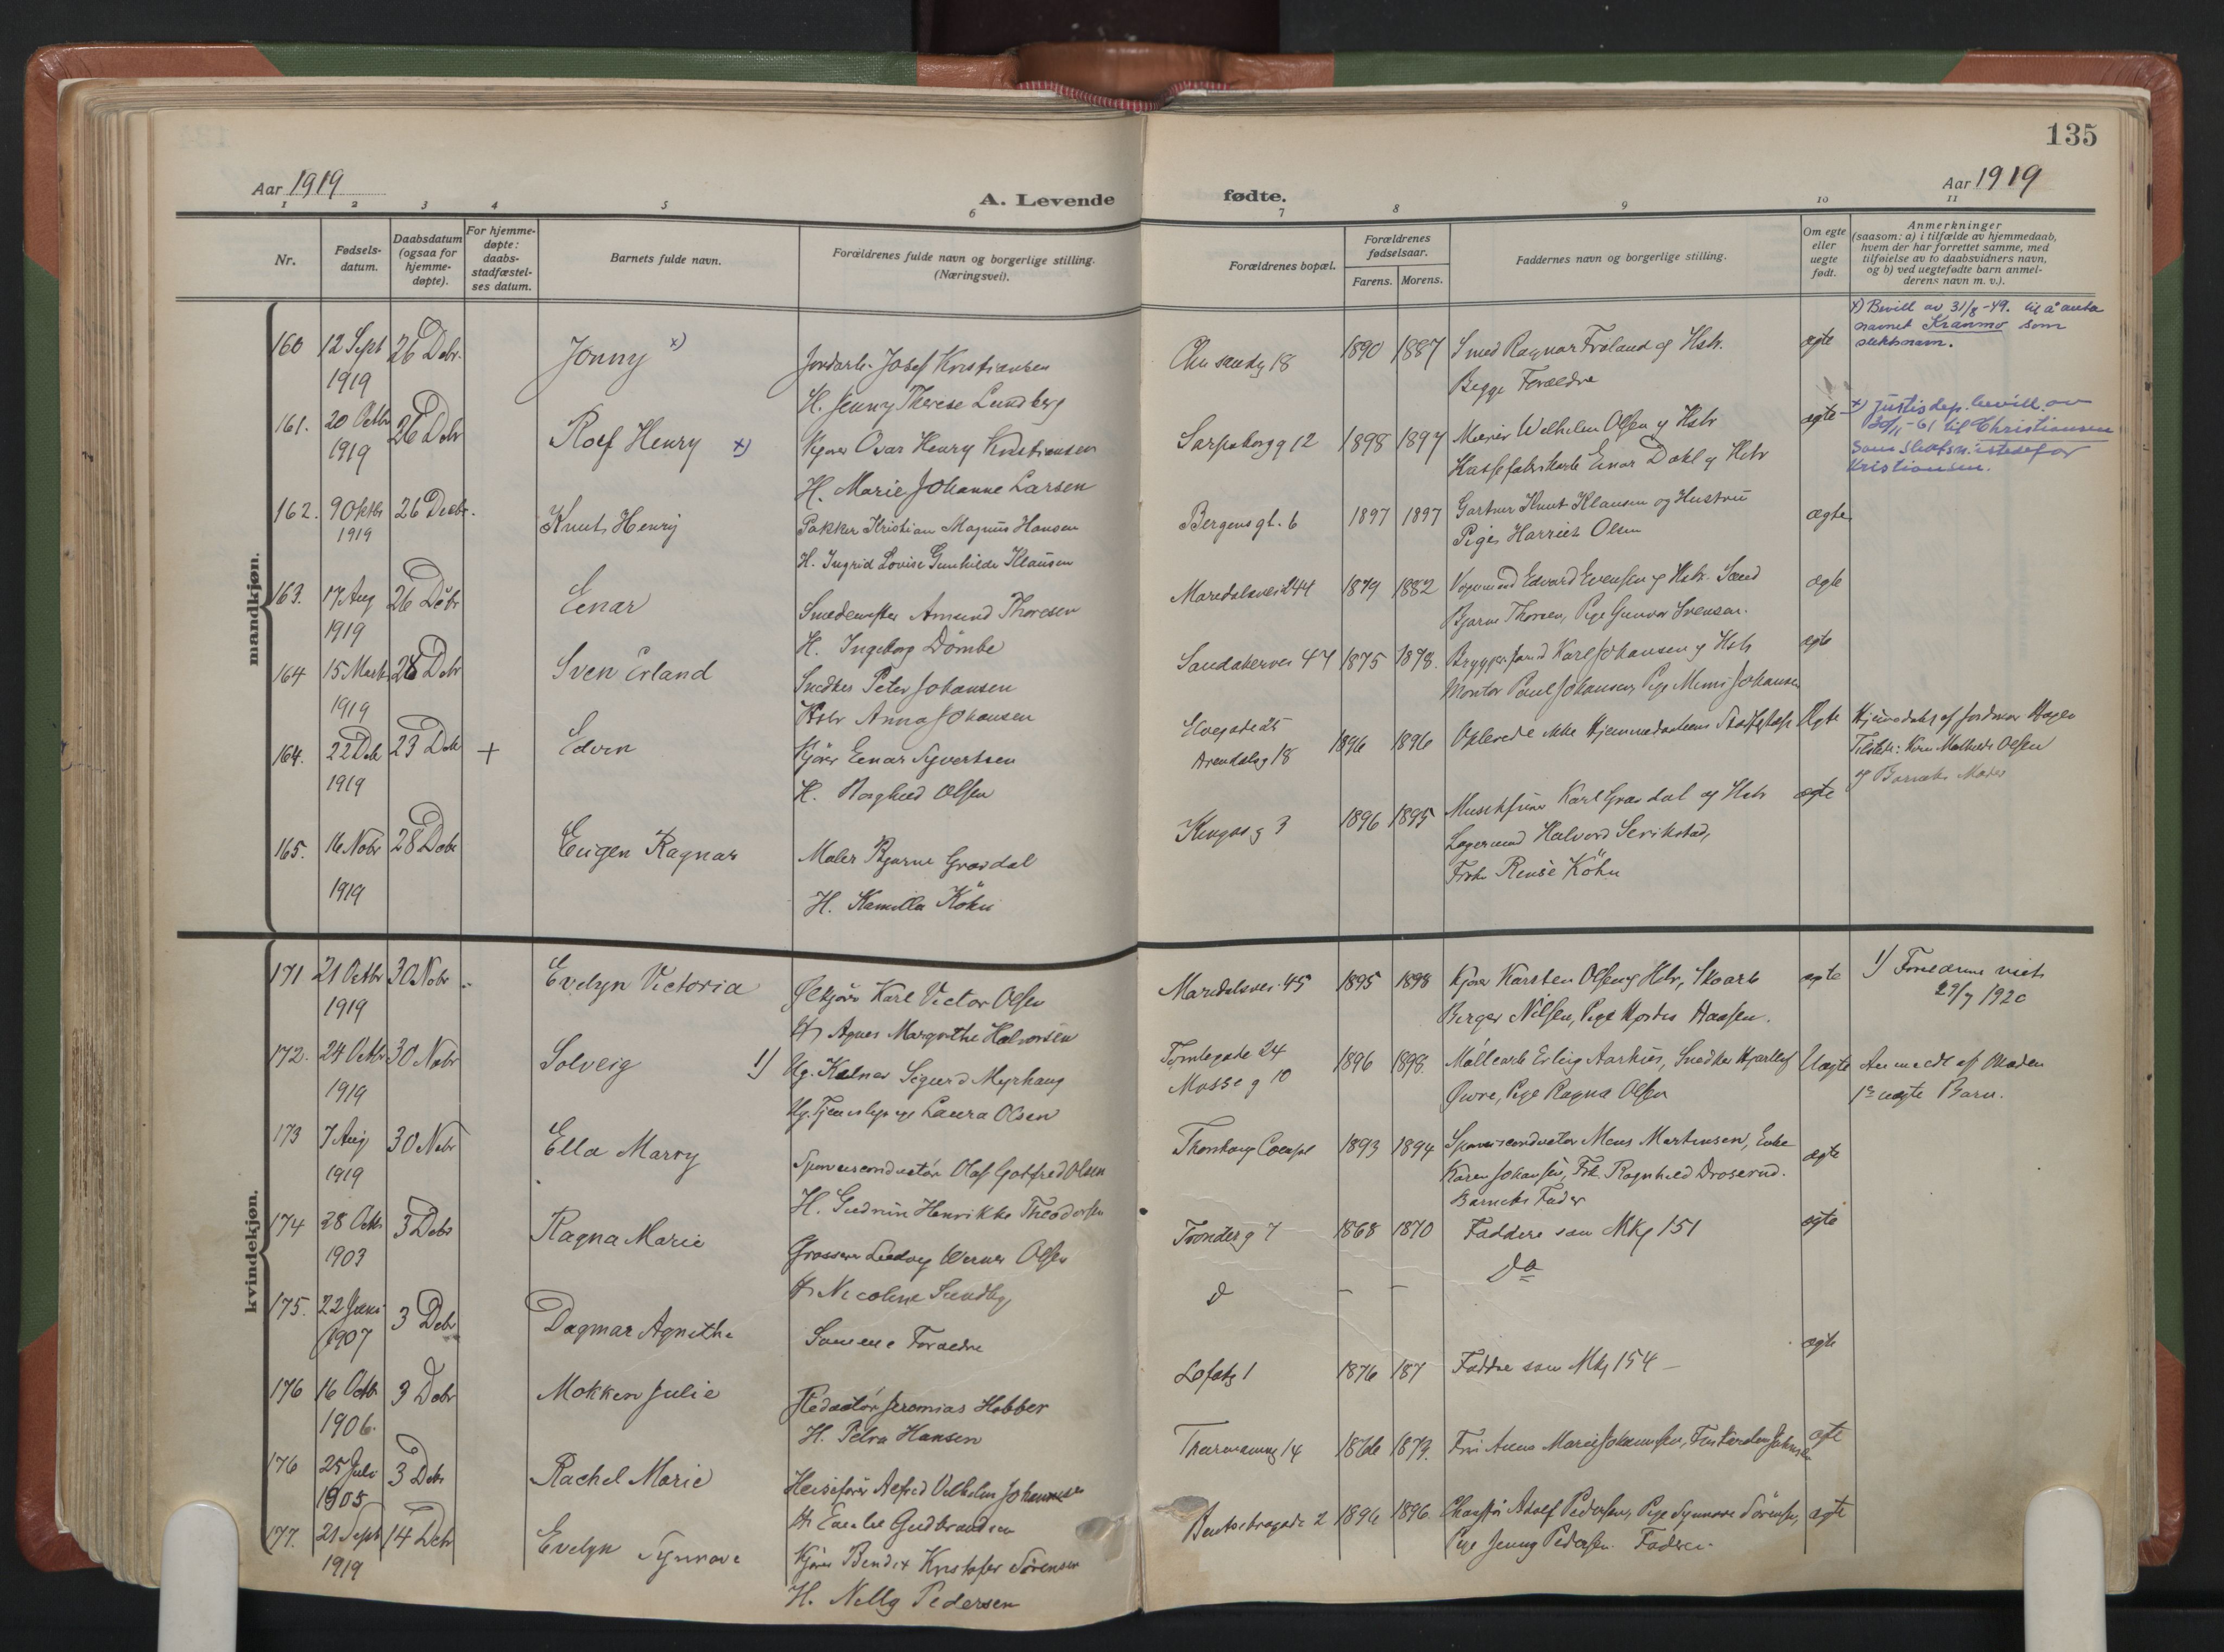 135
Aar 1919
A. Levende
fødte.
Aar 1919
1 2 3 4 5 6 7 8 9 10 11
Nr.
Fødsels-
datum.
Daabsdatum
(ogsaa for
hjemme-
døpte).
For hjemme-
døpte:
daabs-
stadfæstel-
ses datum.
Barnets fulde navn.
Forældrenes fulde navn og borgerlige stilling.
(Næringsvei).
Forældrenes bopæl.
Forældrenes
fødselsaar.
Farens. Morens.
Faddernes navn og borgerlige stilling.
Om egte
eller
uegte
født.
Anmerkninger
(saasom: a) i tilfælde av hjemmedaab,
hvem der har forrettet samme, med
tilføielse av to daabsvidners navn,
og b) ved uegtefødte barn anmel-
derens navn m. v.).
mandkjøn.
160 12 Sept 26 Debr. Jonny x) Josef Kristiansen
1919
H. Jenny Therese Lundberg
18 1890 1887 Smed Ragnar Frøland og Hstr.
Begge Forældre
egte
x) Bevill av 31/8-49. til å anta
navnet Kranmo som
slektsnavn.
161. 20 Octbr 26 Debr Rolf Henry x) Kjører Henry Kristiansen
1919
H. Marie Johanne Larsen
Sarpsborgg 12 1898 1897 Wilhelm Olsen og Hstr
Einar Dahl og Hstr
egte
x) Justisdep. bevill. av
30/11-61 til Christiansen
som istedefor
Kristiansen.
162. 9 Oktbr 26 Decbr. Knut Henry Pakker Kristian Magnus Hansen
1919
H. Ingrid Lovise Gunhilde Klausen
Bergensgt. 6 1897 1897 Gartner Knut Klausen og Hustru
Pige Harriet Olsen
ægte
163. 17 Aug 26 Debr Einar Smedemester Amund Thoresen
1919
H. Ingeborg Dömbe
Maridalsvei 244 1879 1882 Vognmand Edvard Evensen og Hstr.
Bjarne Thoresen, Pige Gunvor Svensen.
egte
164 15 Marts 28 Debr Sven Erland Snedker Peter Johansen
1919
Hstr Anna Johansen
Sandakervei 47 1875 1878. Karl Johansen og Hstr
Montør Paul Johansen, Pige Mimi Johansen
egte
164. 22 Deb 23 Deb + Edvin Kjører Einar Syvertsen
1919
H. Borghild Olsen
Elvegade 25
Arendalsg 18
1896 1896 Oplevede ikke Hjemmedaabens Stadfæstelse
Ægte
Hjemmedøbt af Jordmor Hagen
Mathilde Olsen
og Barnets Moder
165. 16 Nobr 28 Debr Eugen Ragnar Maler Bjarne Grøsdal
1919
H. Kamilla Köhn
3 1896 1895 Karl Grøsdal og Hstr
Lagermand Halvord
Köhn
egte
kvindekjøn.
171 21 Octbr 30 Nobr Evelyn Victoria Karl Victor Olsen
1919
H. Agnes Margrethe Halvorsen
Maridalsvei 45 1895 1898 Kjører Karsten Olsen og Hstr, Skoarb
Berger Nilsen, Pige Hjordis Haasen.
egte
172. 24 Octbr 30 Nobr Solveig 1) Ug. Kelner Sigurd Myrhaug
1919
Ug. Tjenestepige Laura Olsen
Tromtegade 24
Mosseg 10
1896 1898. Erling Aarhus, Snedker Hjallef
Øvre, Pige Ragna Olsen
Uegte
1) Forældrene viet
29/7 1920
Anmeldt af Moderen
1ste uegte Barn.
173 7 Aug 30 Nobr Ella Marry Sporveisconductør Olaf Gotfred Olsen
1919
H. Gudrun Henrikke Theodorsen
1893 1894 Sporveisconductør Mortensen, Enke
Karen Johansen, Frk. Ragnhild Droserud.
Barnets Fader
egte
174 28 Octb 3 Debr Ragna Marie Grosserer Ludvig Werner Olsen
1903
H. Nicoline Sundby
Trønderg 7 1868 1870 Faddere som Mkj 151
egte
175. 22 Juni 3 Debr Dagmar Agnethe Samme Forældre
1907
d — — do
176 16 Octb 3 Debr Mokken Julie Redactør Jeremias Hobber
1906.
H. Petra Hansen
Lofotg 1 1876 187 Faddre som Mkj 154 —
egte
176 25 Juli 3 Debr Rachel Marie Heisefører Alfred Vilhelm Johannesen
1905
H. Gudbrandsen
14 1876 1879. Fru Anna Marie Johannesen,
egte
177. 21 Sept 14 Debr Evelyn Synnøve Kjører Bendix Kristofer Sörensen
1919
H. Nelly Pedersen
Bentsebrogade 2 1896 1896. Chauffør Adolf Pedersen, Pige Synnøve Sörensen,
Pige Jenny Pedersen. Faderen.
egte